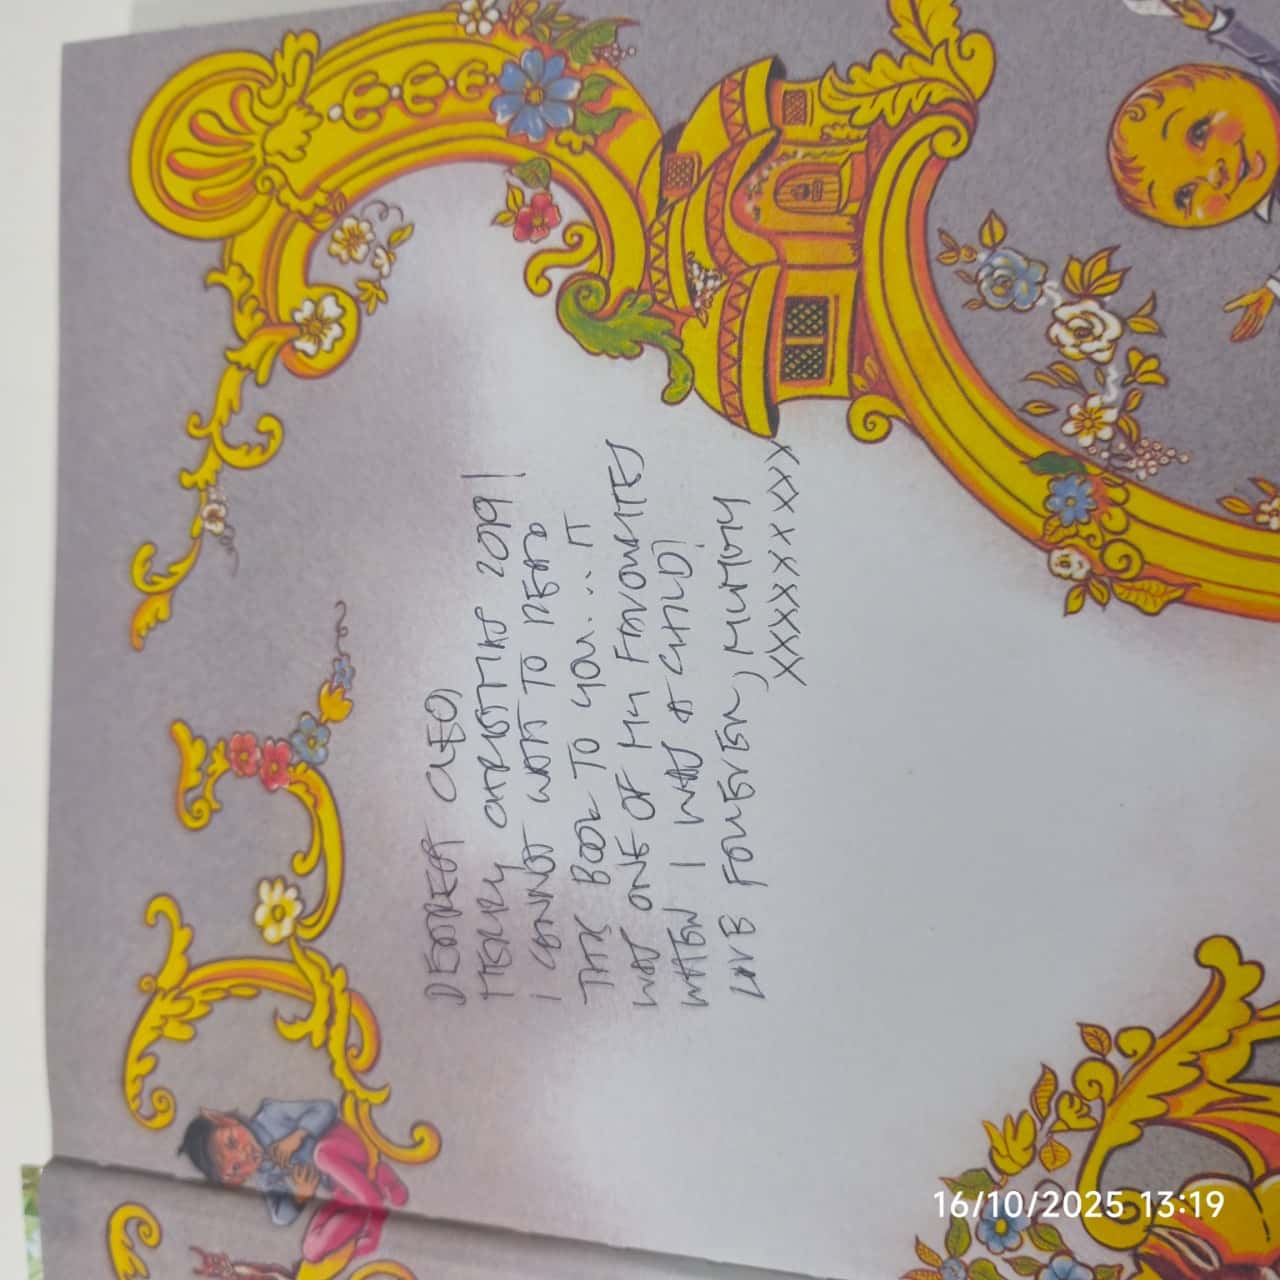 DEAREST CLEO,
MERRY CHRISTMAS 2019!
I CANNOT WAIT TO READ
THIS BOOK TO YOU... IT
WAS ONE OF MY FAVOURITES
WHEN I WAS A CHILD!
LOVE FOREVER, MUMMY
XXXXXXXXXX
16/10/2025 13:19